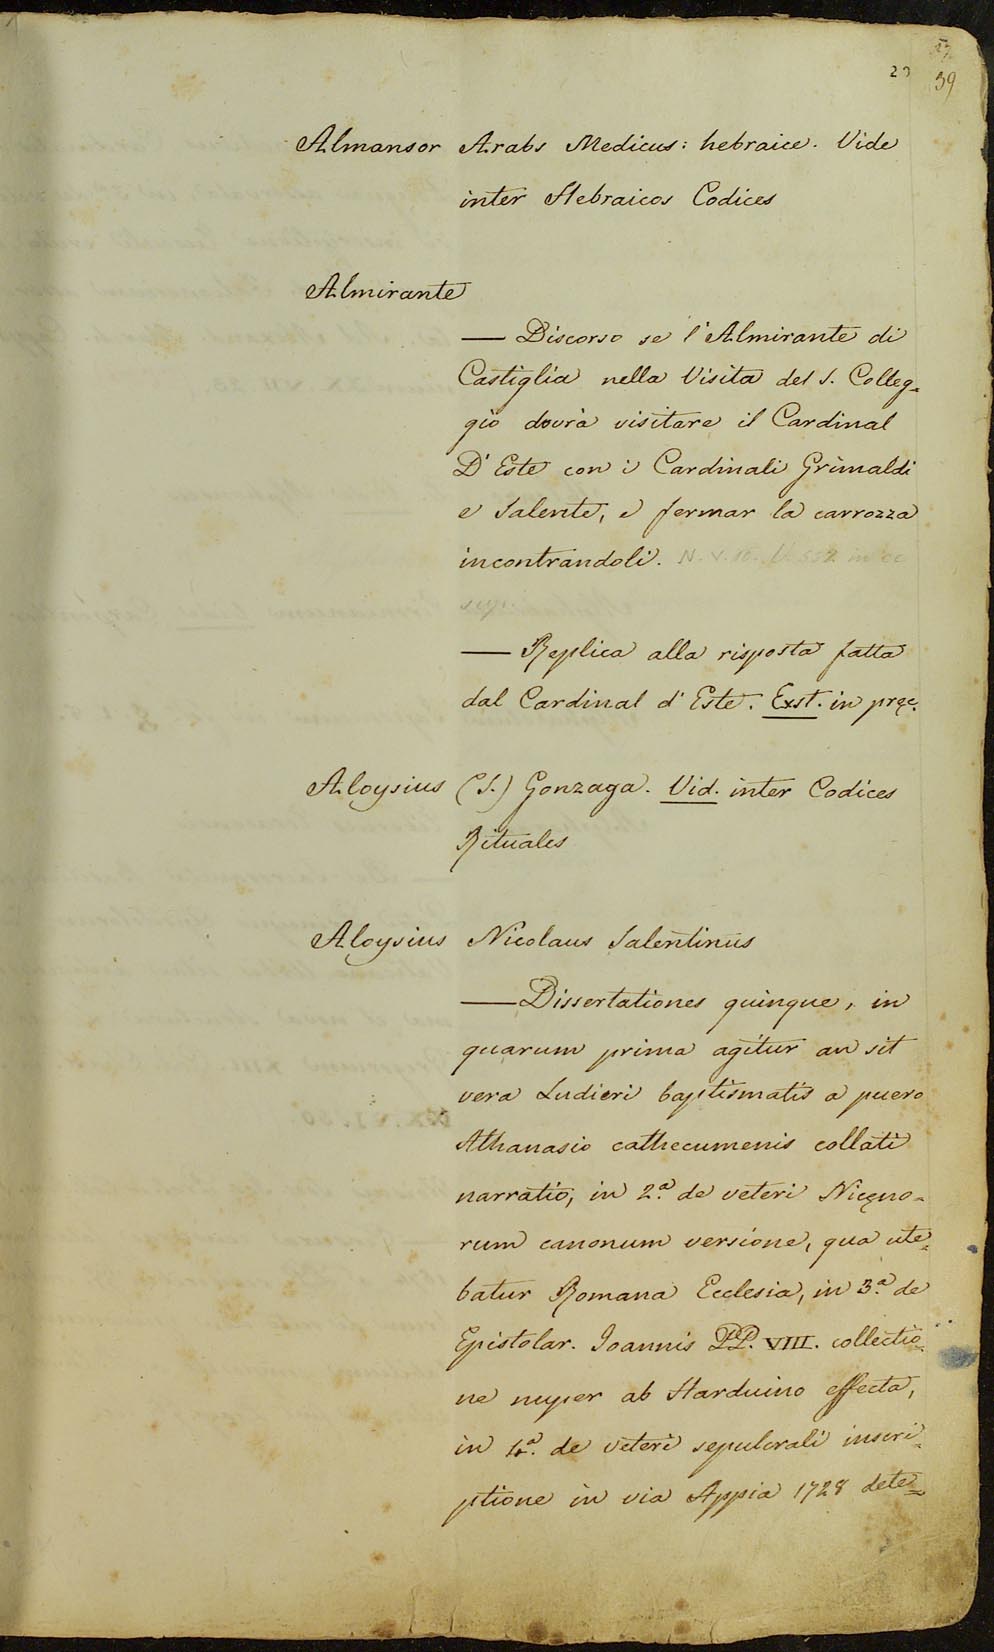 39
Almansor Arabs Medicus: hebraice. Vide
inter Hebraicos Codices
Almirante
— Discorso se l'Almirante di
Castiglia nella Visita del S. Colleg-
gio dovrà visitare il Cardinal
D'Este con i Cardinali Grimaldi
e Valente, e fermar la carrozza
incontrandoli. N. V.
— Replica alla risposta fatta
dal Cardinal d'Este. Exst. in pręc.
Aloysius (S.) Gonzaga. Vid. inter Codices
Rituales
Aloysius Nicolaus Salentinus
— Dissertationes quinque, in
quarum prima agitur an sit
vera Ludicri baptismatis a puero
Athanasio cathecumenis collati
narratio; in 2.ª de veteri Nicęno-
rum canonum versione, qua ute-
batur Romana Ecclesia, in 3.ª de
Epistolar. Joannis PP. VIII. collectio-
ne nuper ab Harduino effecta,
in 4.ª de veteri sepulcrali inscri-
ptione in via Appia 1728 dete-